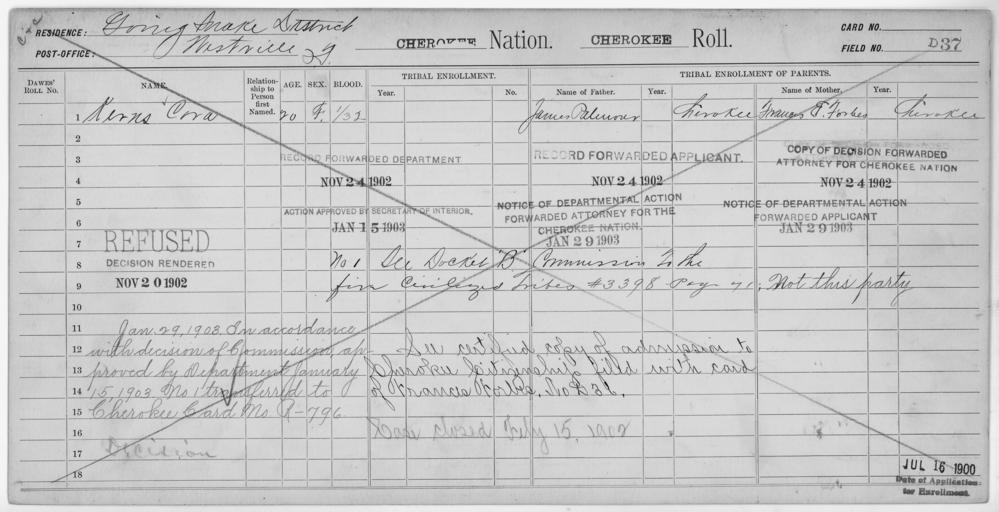 RESIDENCE: Going Snake District
POST-OFFICE: Westville I.T.
CHEROKEE Nation. CHEROKEE Roll.
CARD NO.
FIELD NO. D37
DAWES' ROLL NO.
NAME.
Relationship to Person first Named.
AGE.
SEX.
BLOOD.
TRIBAL ENROLLMENT.
Year.
No.
TRIBAL ENROLLMENT OF PARENTS.
Name of Father.
Year.
Name of Mother.
Year.
1 Kerns Cora 20 F. 1/32 James Cherokee Francis F. Forbes Cherokee
2
3 RECORD FORWARDED DEPARTMENT RECORD FORWARDED APPLICANT. COPY OF DECISION FORWARDED
ATTORNEY FOR CHEROKEE NATION
4 NOV 24 1902 NOV 24 1902 NOV 24 1902
5 NOTICE OF DEPARTMENTAL ACTION NOTICE OF DEPARTMENTAL ACTION
6 ACTION APPROVED BY SECRETARY OF INTERIOR. FORWARDED ATTORNEY FOR THE FORWARDED APPLICANT
JAN 15 1903 CHEROKEE NATION. JAN 29 1903
7 REFUSED JAN 29 1903
8 DECISION RENDERED No 1 See Docket "B" Commission to the
9 NOV 20 1902 five Civilized Tribes #3398 Page 71, Not this party
10
11 Jan. 29, 1903. In accordance
12 with decision of Commission, ap- See certified copy of admission to
13 proved by Department January Cherokee Citizenship filed with card
14 15, 1903 No 1 transferred to of Francis Forbes, No D36.
15 Cherokee Card No. R-796
16 Case closed July 15, 1902
17 Decision
18
JUL 16 1900
Date of Application
for Enrollment.